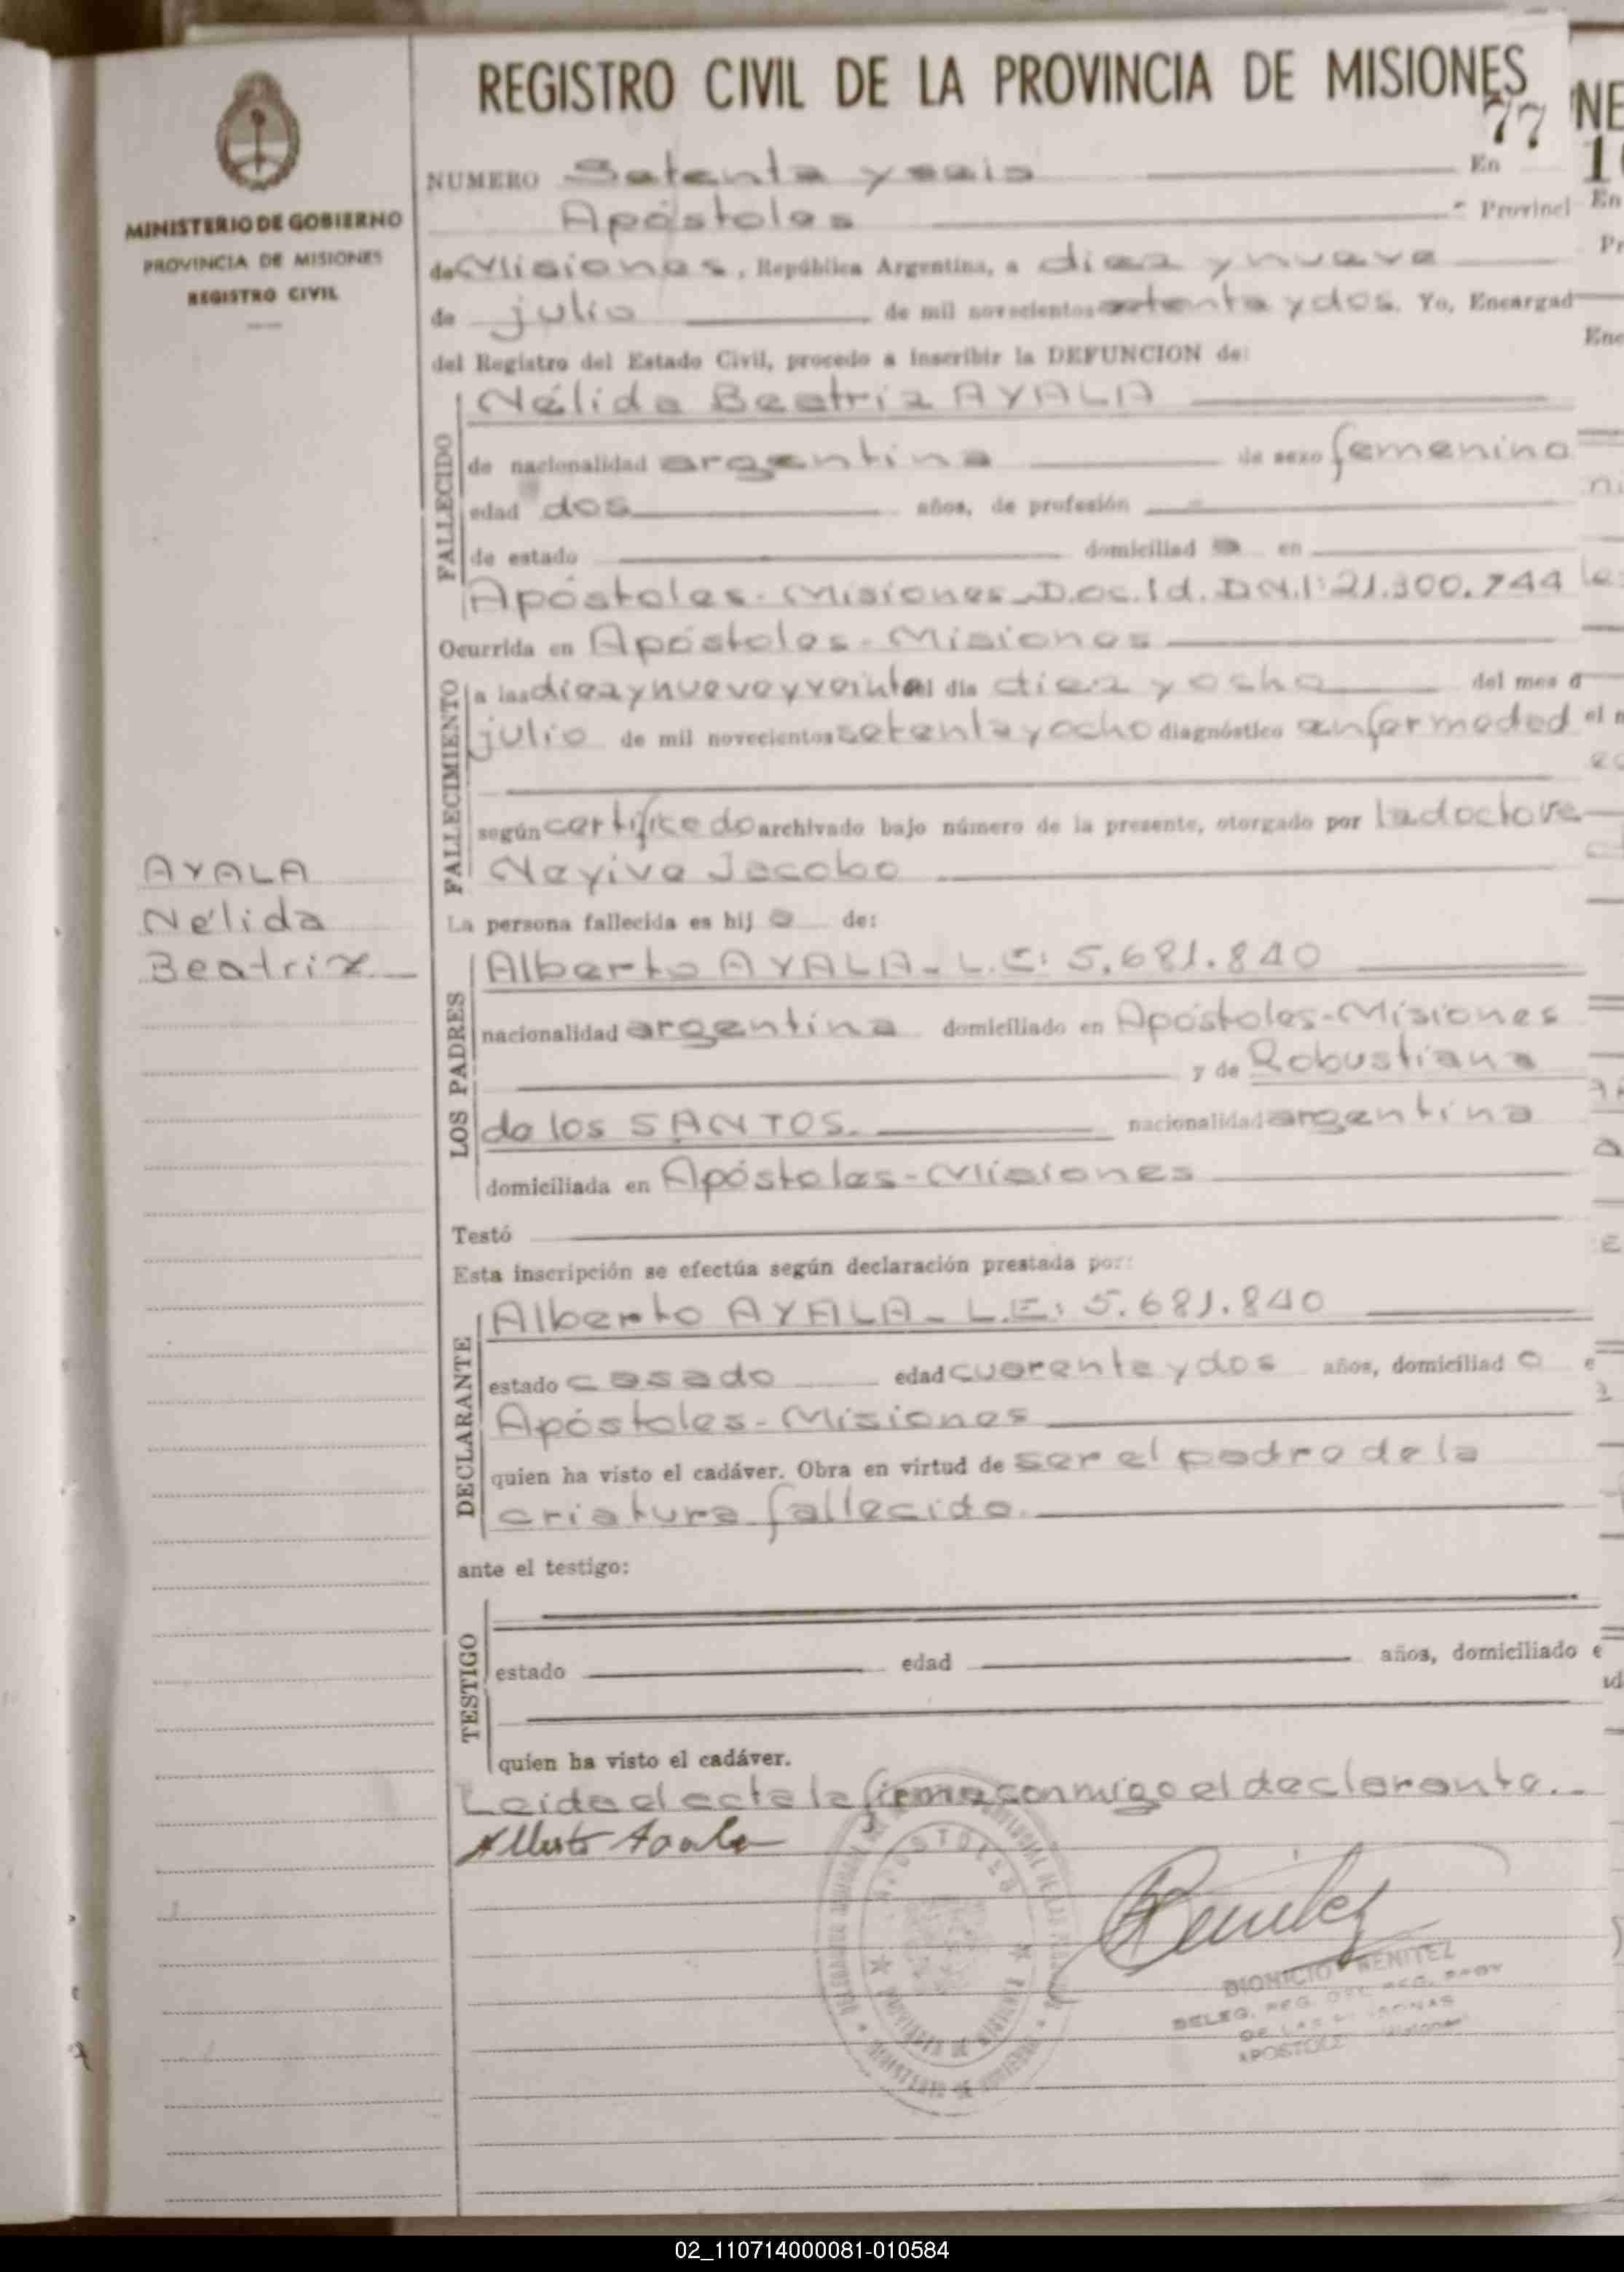 REGISTRO CIVIL DE LA PROVINCIA DE MISIONES
77
NUMERO Setenta y seis En
Apóstoles Provinci
MINISTERIO DE GOBIERNO
PROVINCIA DE MISIONES
REGISTRO CIVIL
de Misiones, República Argentina, a diez y nueve
de julio de mil novecientos setenta y dos. Yo, Encargad
del Registro del Estado Civil, procedo a inscribir la DEFUNCION de:
FALLECIDO
Nélida Beatriz AYALA
de nacionalidad argentina de sexo femenino
edad dos años, de profesión
de estado domiciliad a en
Apóstoles - Misiones - Doc. Id. D.N.I: 21.300.744
Ocurrida en Apóstoles - Misiones
FALLECIMIENTO
a las diez y nueve y veinte el día diez y ocho del mes d
julio de mil novecientos setenta y ocho diagnóstico enfermedad
según certificado archivado bajo número de la presente, otorgado por la doctora
Nayiva Jacobo
AYALA
Nélida
Beatriz
La persona fallecida es hij a de:
LOS PADRES
Alberto AYALA - L.E: 5.681.840
nacionalidad argentina domiciliado en Apóstoles - Misiones
y de Robustiana
de los SANTOS. nacionalidad argentina
domiciliada en Apóstoles - Misiones
Testó
Esta inscripción se efectúa según declaración prestada por:
DECLARANTE
Alberto AYALA - L.E: 5.681.840
estado casado edad cuarenta y dos años, domiciliad o e
Apóstoles - Misiones
quien ha visto el cadáver. Obra en virtud de ser el padre de la
criatura fallecida.
ante el testigo:
TESTIGO
estado edad años, domiciliado e
quien ha visto el cadáver.
Leida el acta la firma conmigo el declarante.
Alberto Ayala
APOSTOLES
Benitez
DIONICIO BENITEZ
DELEG. REG. DEL REG. PROV
DE LAS PERSONAS
APOSTOLES Misiones
02_110714000081-010584